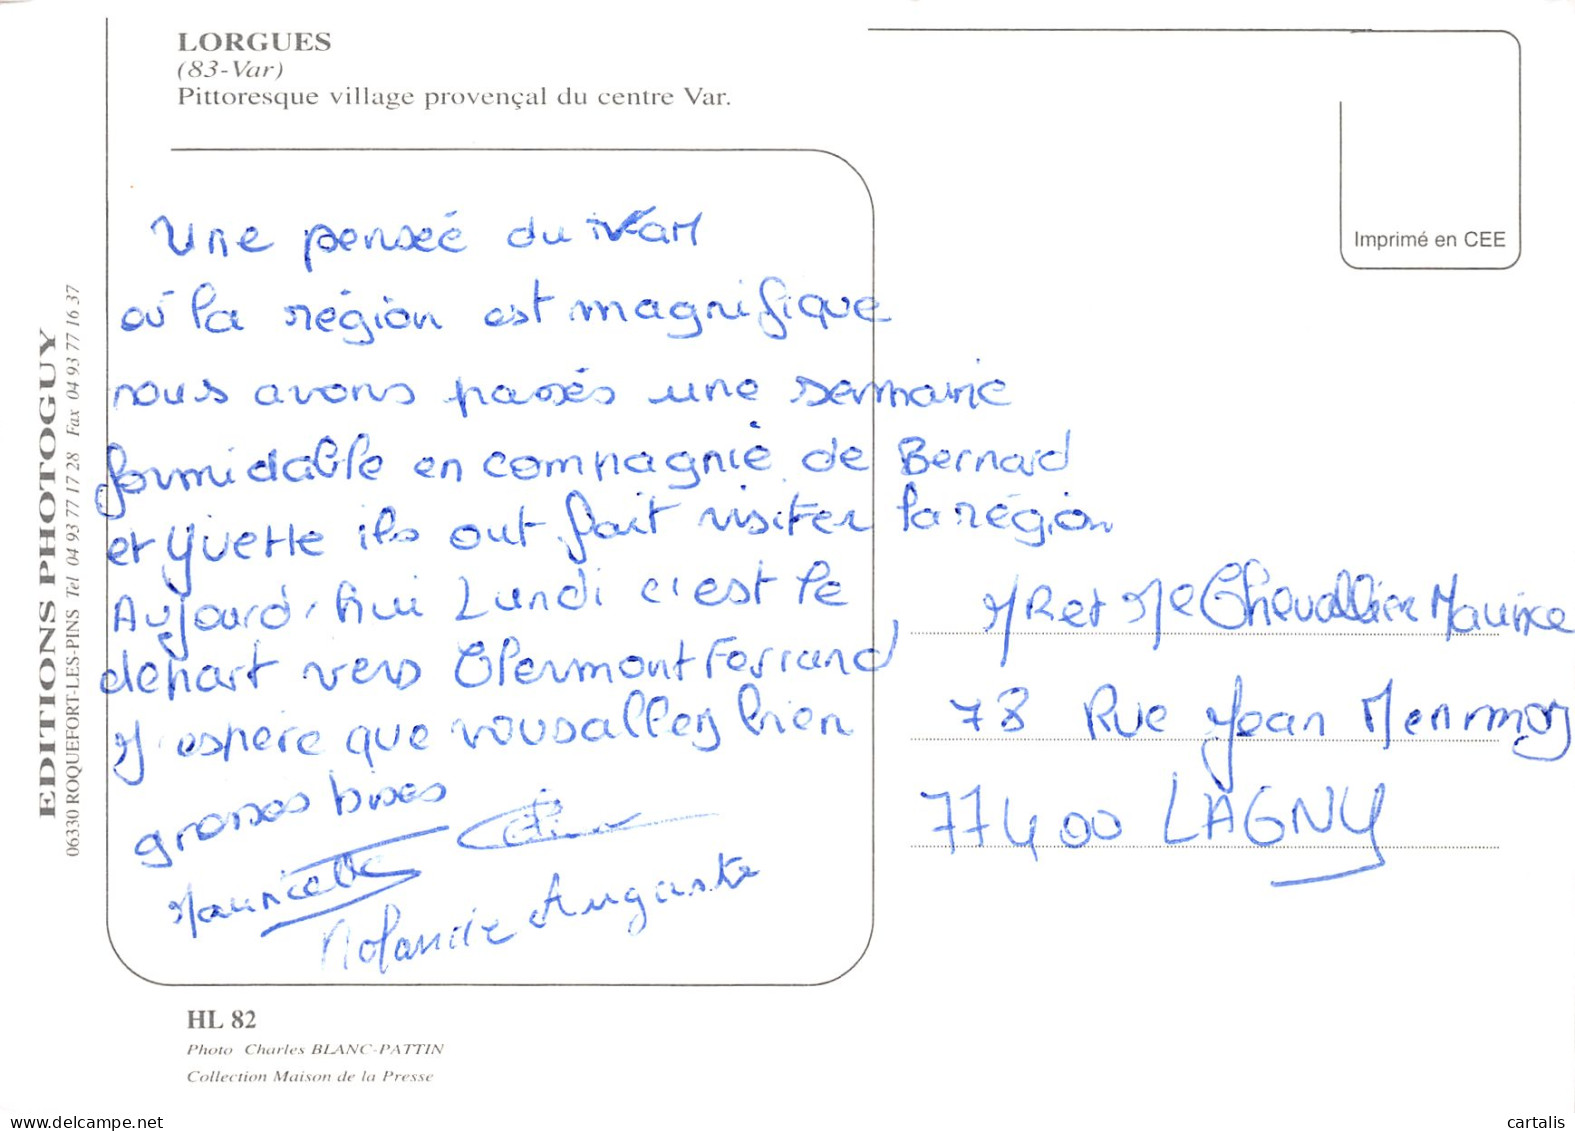 LORGUES
(83-Var)
Pittoresque village provençal du centre Var.
Imprimé en CEE
EDITIONS PHOTOGUY
06330 ROQUEFORT-LES-PINS Tel 04 93 77 17 28 Fax 04 93 77 16 37
Une pensée du Var
où la région est magnifique
nous avons passés une semaine
formidable en compagnie de Bernard
et Yvette ils out fait visiter la région
Aujourd'hui Lundi c'est le
départ vers Clermont Ferrand
J'espère que vous allez bien
grosses bises
Mauricette
Rolande Auguste
MR et Me Chevallier Maurice
73 Rue Jean Mermoz
77400 LAGNY
HL 82
Photo Charles BLANC-PATTIN
Collection Maison de la Presse
www.delcampe.net
cartalis